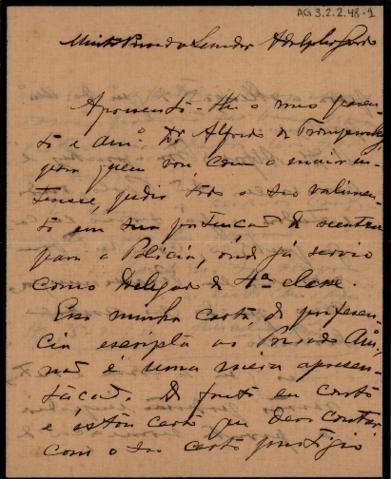 AG 3.2.2.48-1
Adolpho Gordo
Apresento-lhe o meu paren-
te e am.º Dr. Alfredo de
para quem vou, com o maior in-
teresse, pedir todo o seu valimen-
to em sua pretenção de
para a Policia, onde já serviu
como Delegado de 4ª classe.
Essa minha carta, de preferen-
cia escripta ao Presado Am.º,
não é uma mera apresen-
tação. De facto eu conto
e estou certo que devo contar
com o seu certo prestigio